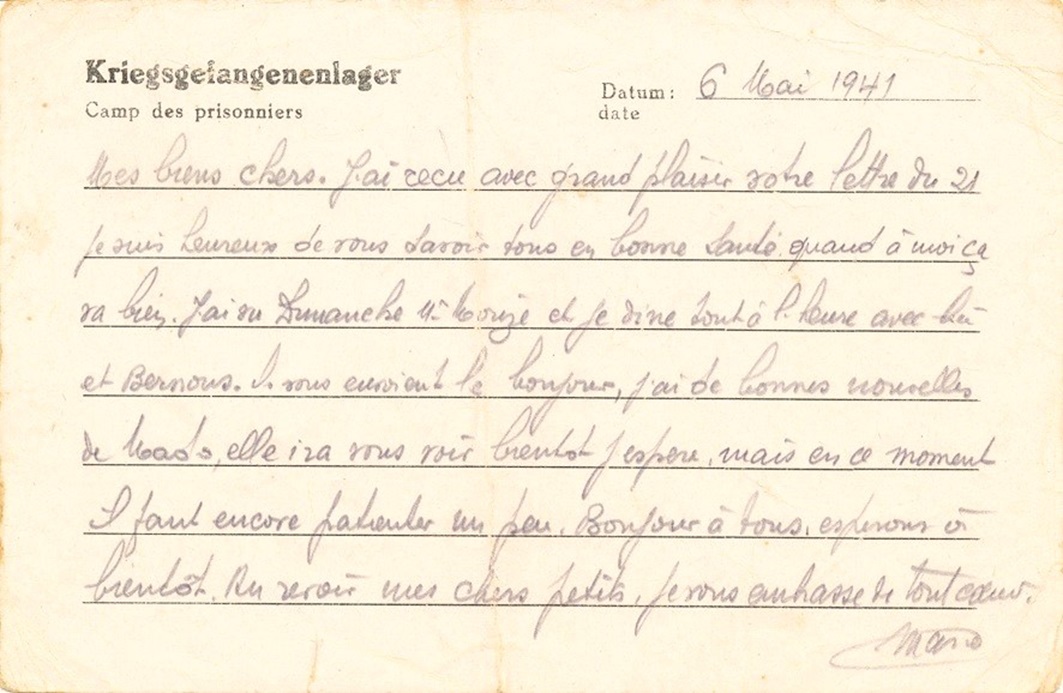 Kriegsgefangenenlager
Camp des prisonniers
Datum: 6 Mai 1941
date
Mes biens chers. J'ai reçu avec grand plaisir votre lettre du 21
je suis heureux de vous savoir tous en bonne santé, quand à moi ça
va bien. J'ai vu Dimanche Mr et je dine tout à l'heure avec lui
et Bernous. Ils vous envoient le bonjour, j'ai de bonnes nouvelles
de Mado, elle ira vous voir bientot j'espere, mais en ce moment
Il faut encore patienter un peu. Bonjour à tous, esperons à
bientôt. Au revoir mes chers petits, je vous embrasse de tout cœur.